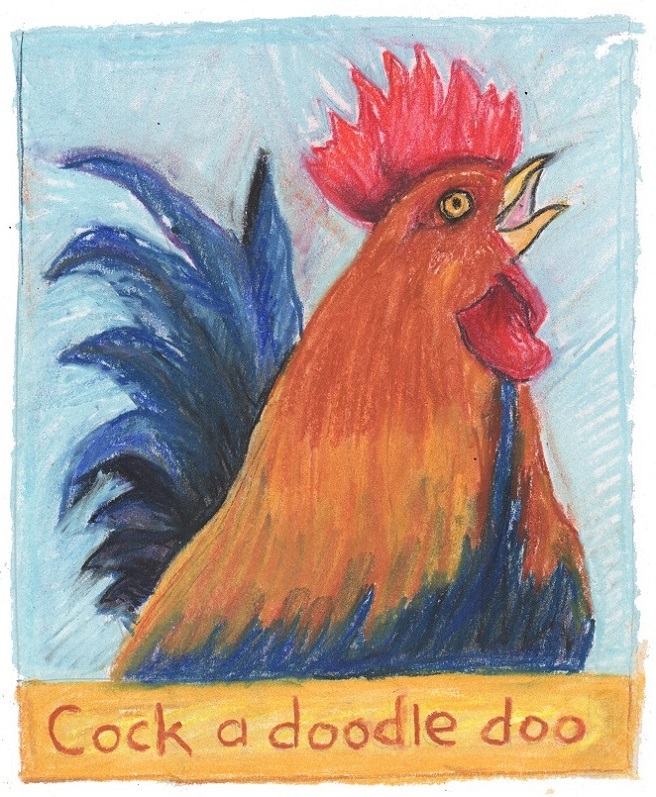 Cock a doodle doo